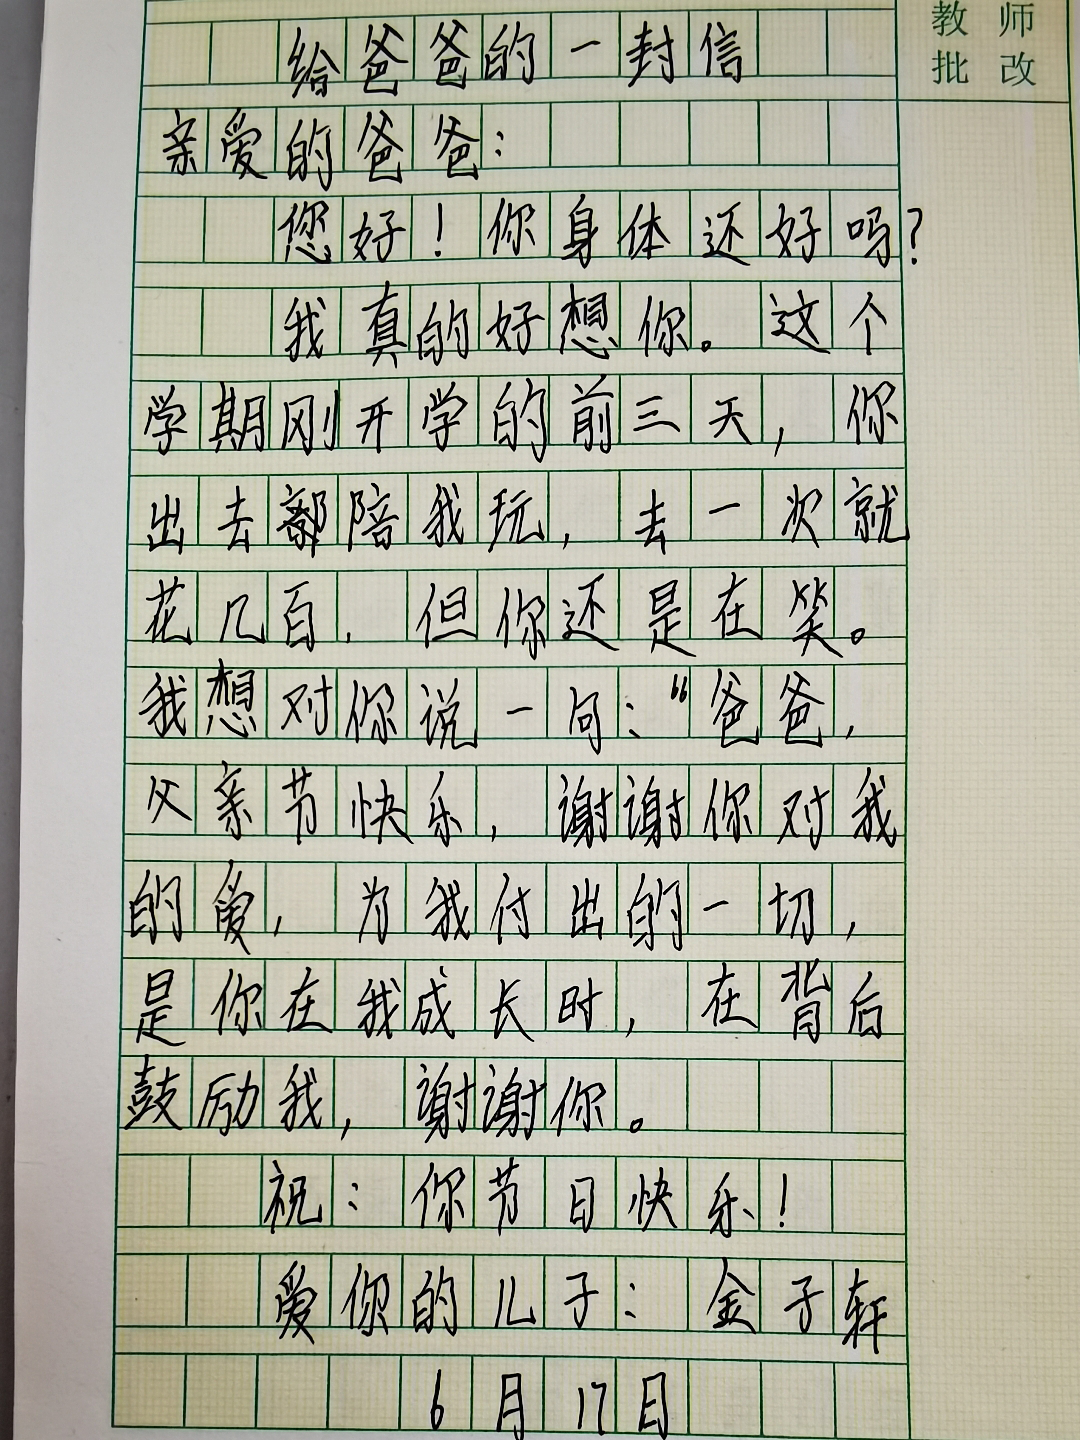 教师
批改
给爸爸的一封信
亲爱的爸爸：
您好！你身体还好吗？
我真的好想你。这个
学期刚开学的前三天，你
出去都陪我玩，去一次就
花几百，但你还是在笑。
我想对你说一句：“爸爸，
父亲节快乐，谢谢你对我
的爱，为我付出的一切，
是你在我成长时，在背后
鼓励我，谢谢你。
祝：你节日快乐！
爱你的儿子：金子轩
6月17日